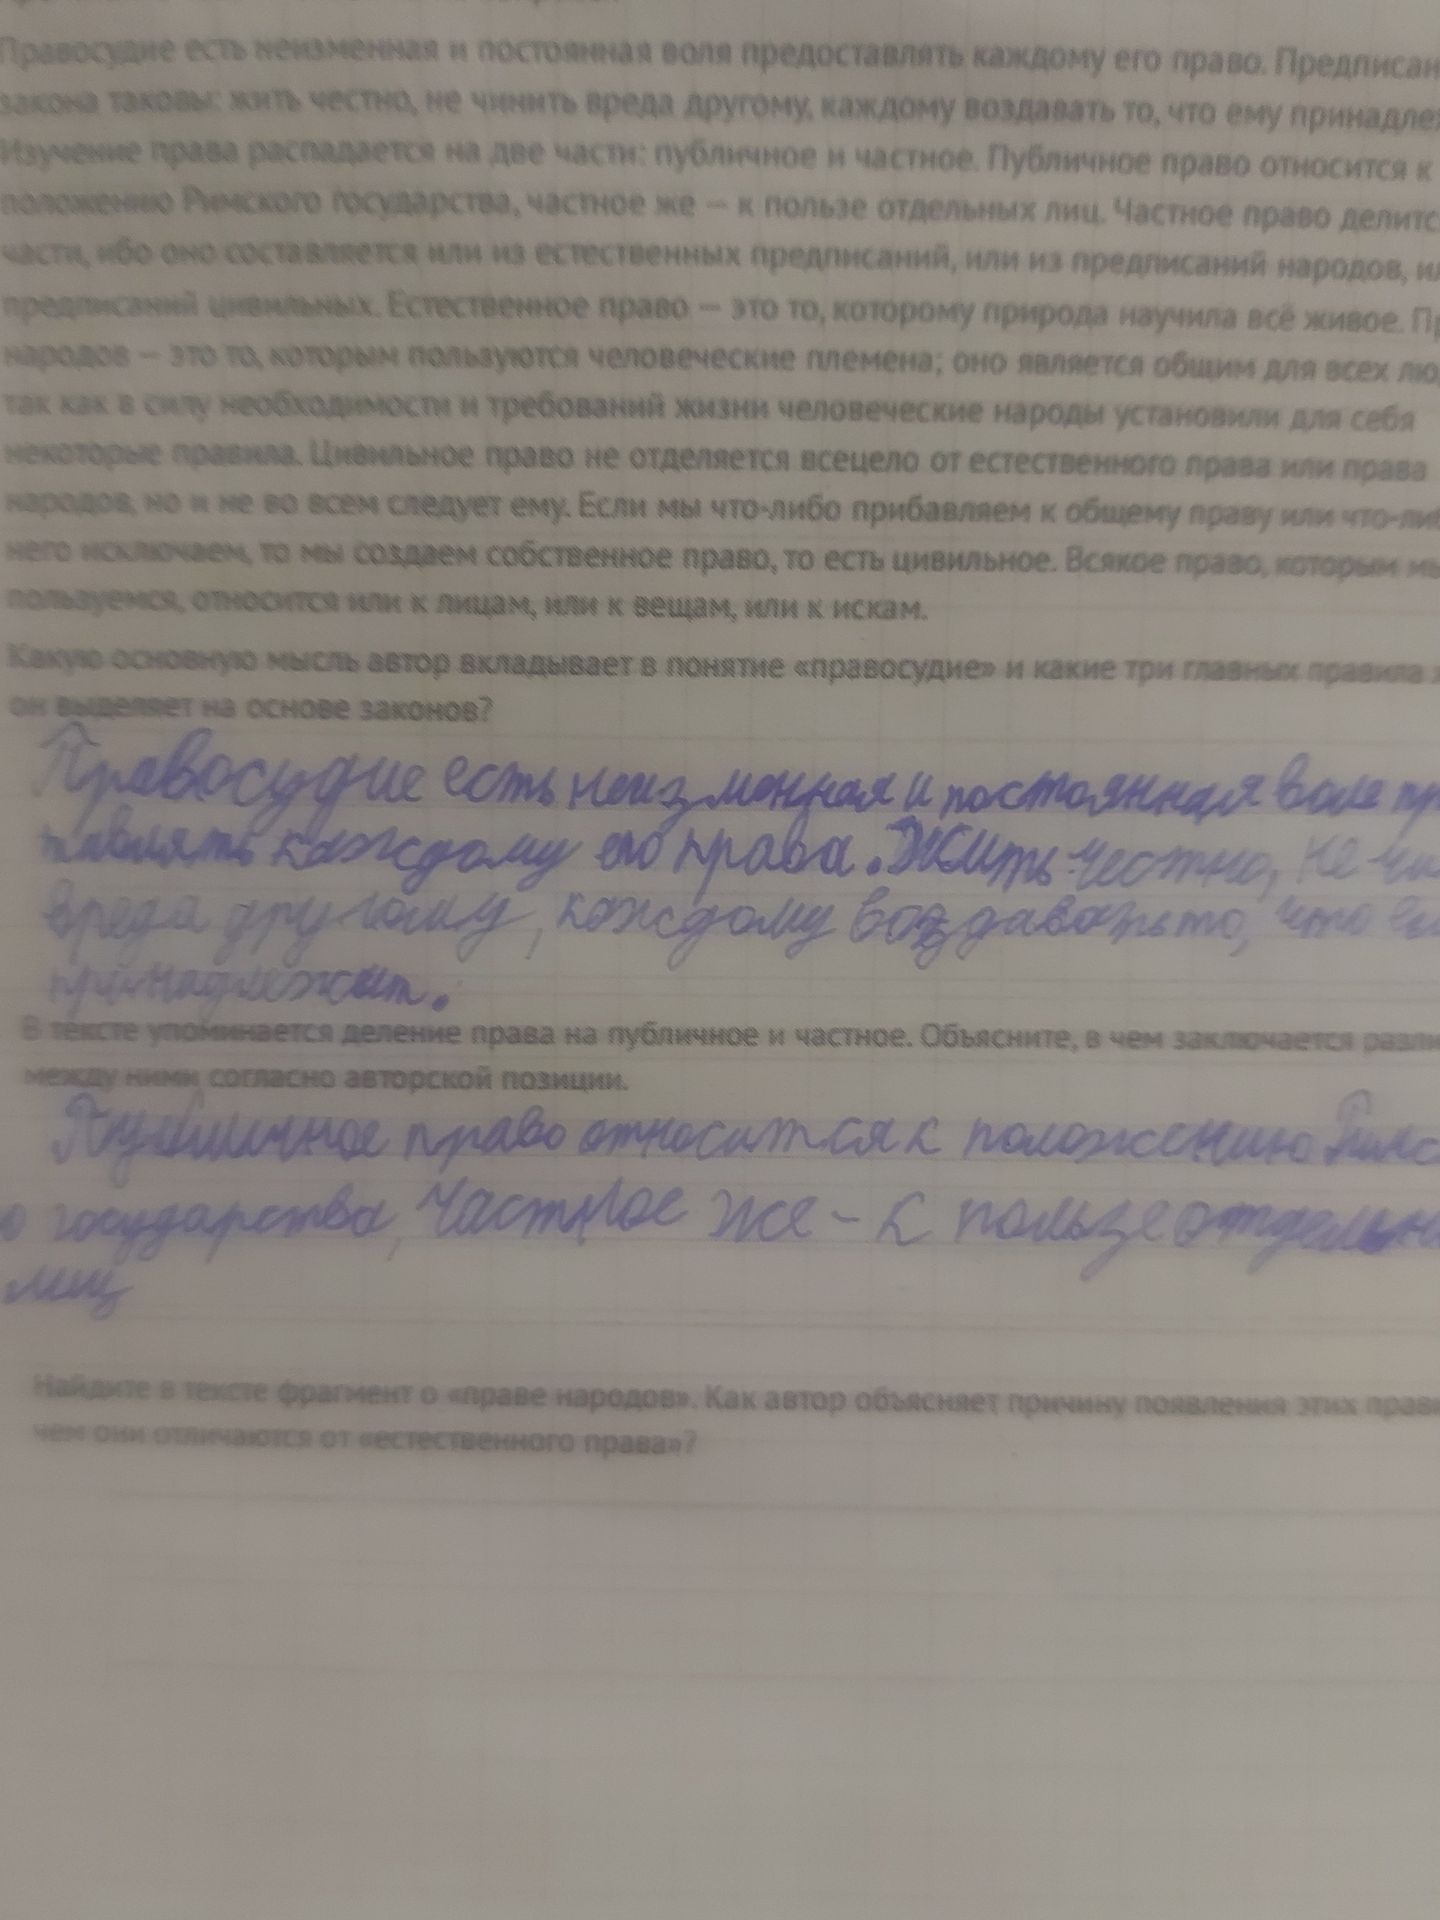 Правосудие есть неизменная и постоянная воля предоставлять каждому его право. Предписан
закона таковы: жить честно, не чинить вреда другому, каждому воздавать то, что ему принадле
Изучение права распадается на две части: публичное и частное. Публичное право относится к
положению Римского государства, частное же — к пользе отдельных лиц. Частное право делитс
части, ибо оно составляется или из естественных предписаний, или из предписаний народов, ил
предписаний цивильных. Естественное право — это то, которому природа научила всё живое. Пр
народов — это то, которым пользуются человеческие племена; оно является общим для всех лю
так как в силу необходимости и требований жизни человеческие народы установили для себя
некоторые правила. Цивильное право не отделяется всецело от естественного права или права
народов, но и не во всем следует ему. Если мы что-либо прибавляем к общему праву или что-ли
него исключаем, то мы создаем собственное право, то есть цивильное. Всякое право, которым мы
пользуемся, относится или к лицам, или к вещам, или к искам.
Какую основную мысль автор вкладывает в понятие «правосудие» и какие три главных правила
он выделяет на основе законов?
Правосудие есть неизменная и постоянная воле пр
тавлять каждому его права. Жить честно, не чи
вреда другому, каждому воздавать то, что
принадлежит.
В тексте упоминается деление права на публичное и частное. Объясните, в чем заключается разли
между ними согласно авторской позиции.
Публичное право относится к положению Римс
о государства, Частное же - к пользе отдельн
лиц
Найдите в тексте фрагмент о «праве народов». Как автор объясняет причину появления этих прав
чем они отличаются от «естественного права»?